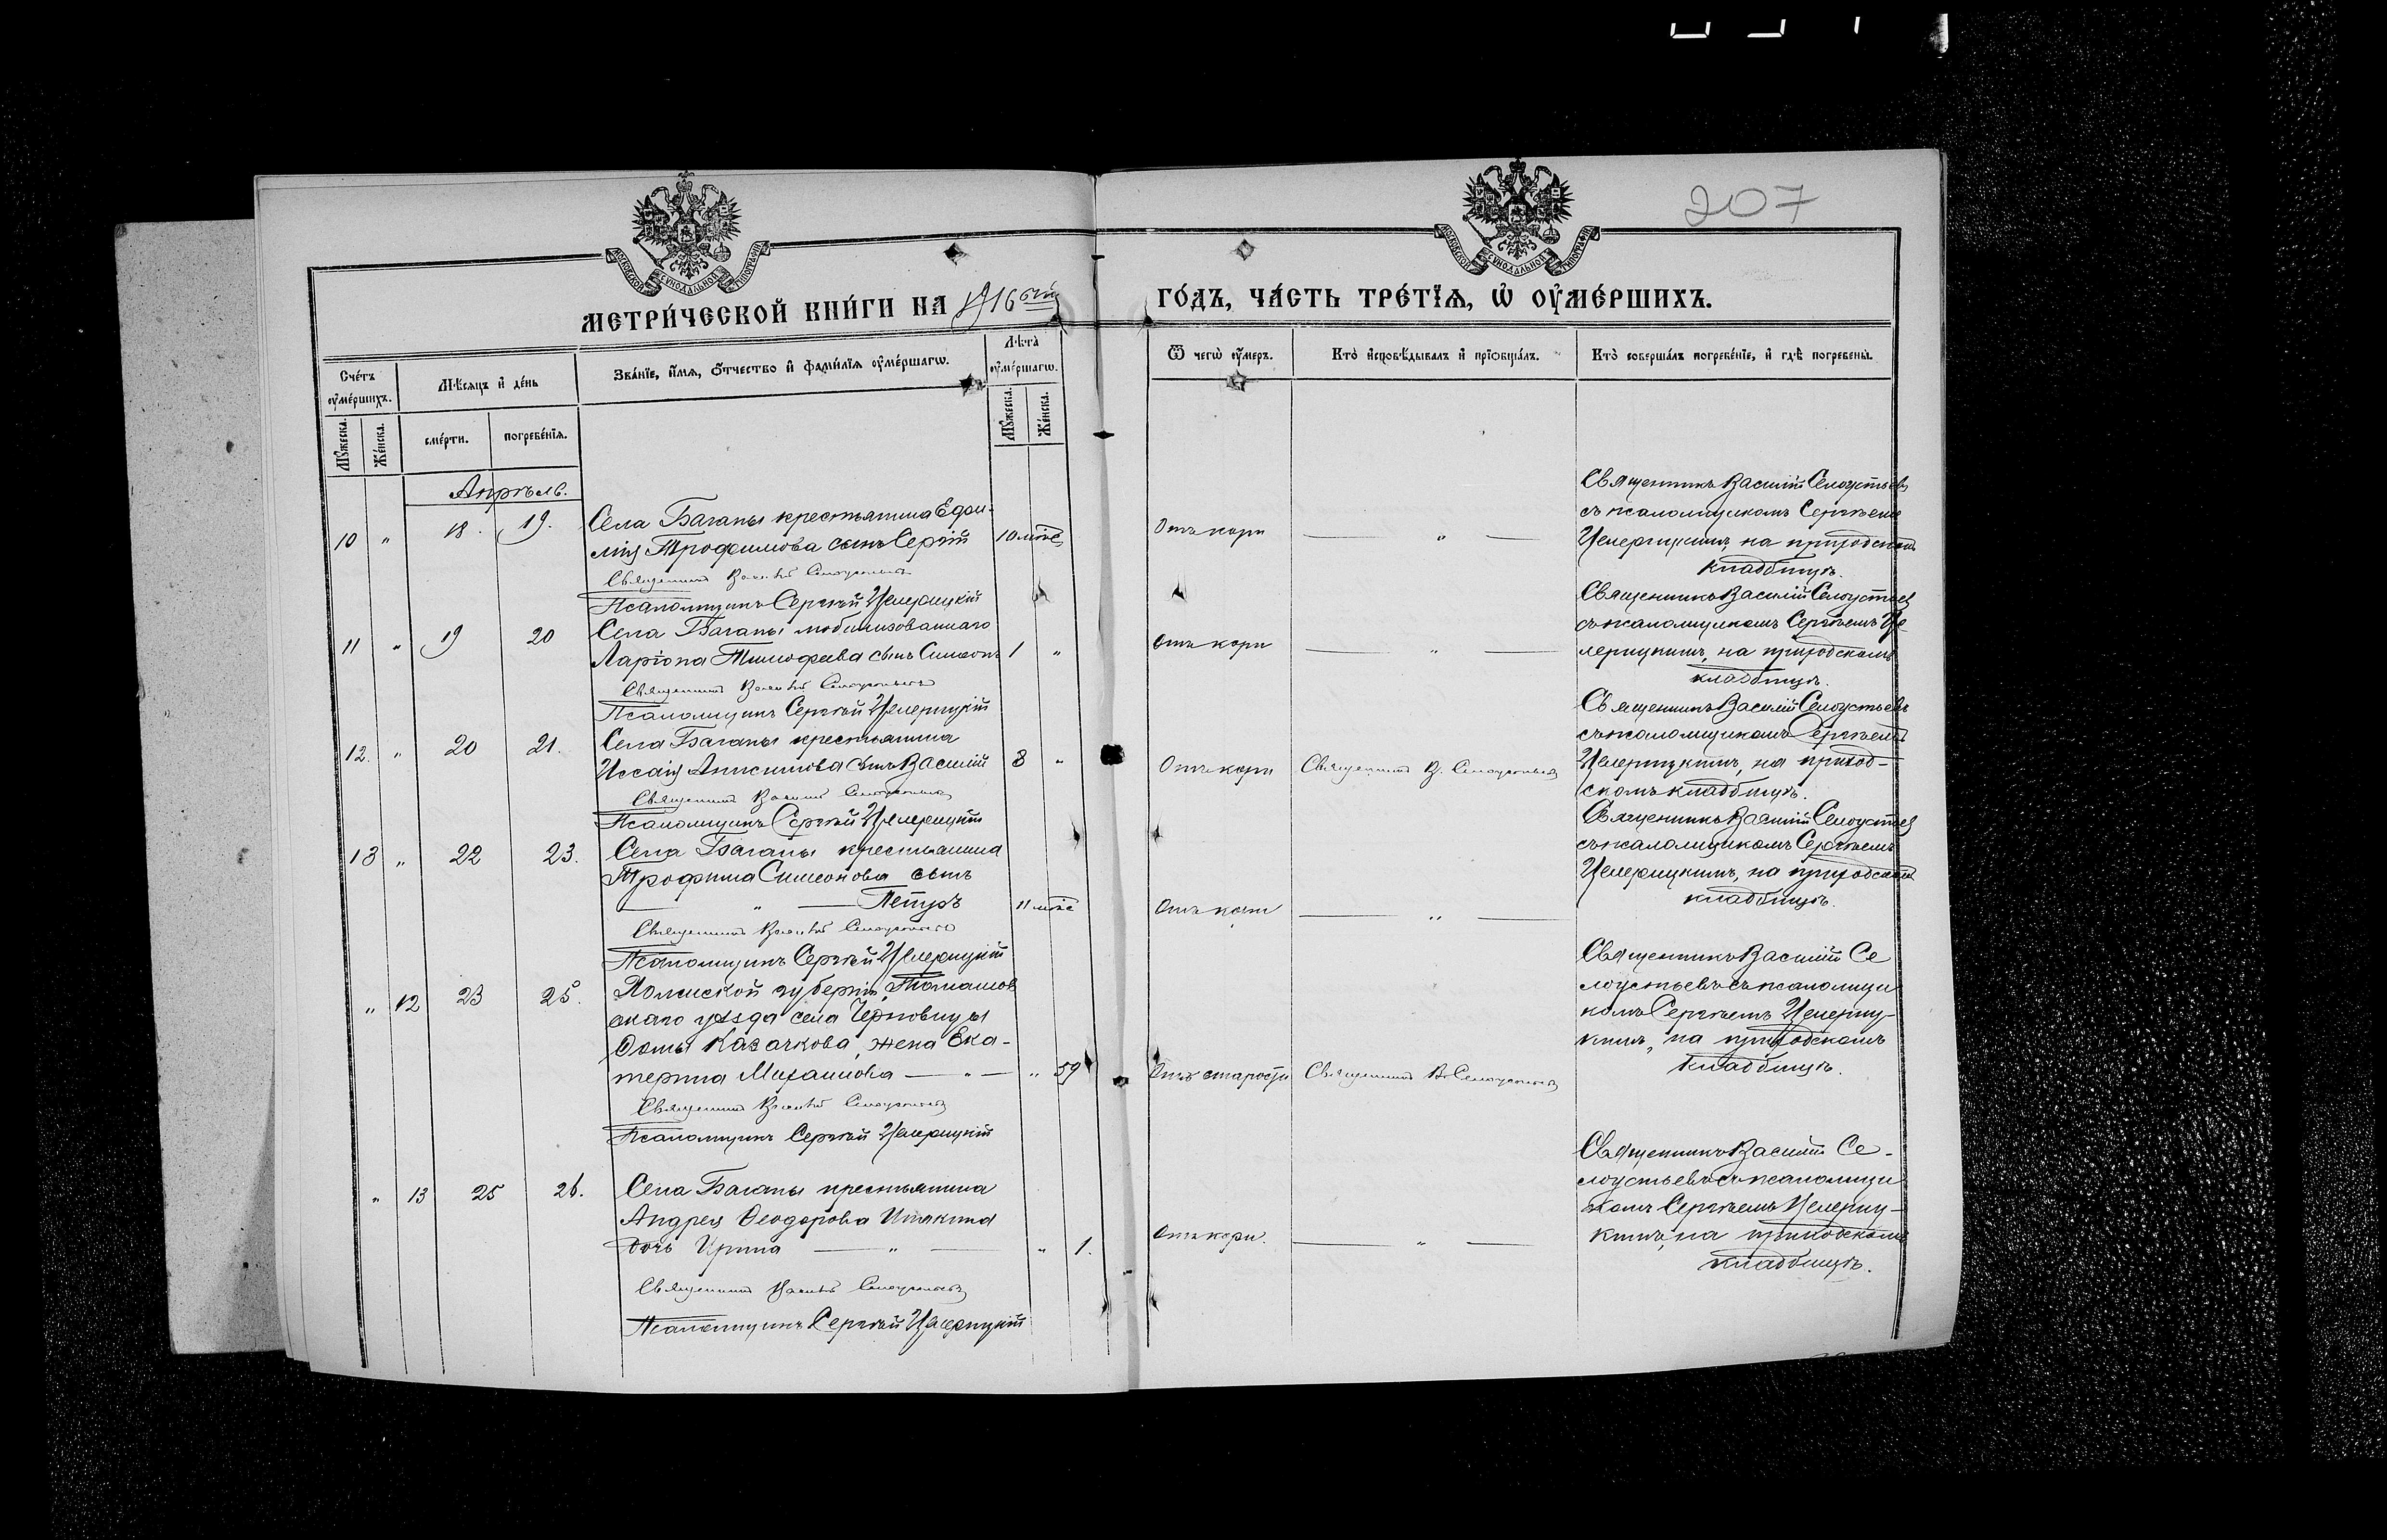 207
МОСКОВСКОЙ СѴНОДАЛЬНОЙ ТИПОГРАФІИ
МОСКОВСКОЙ СѴНОДАЛЬНОЙ ТИПОГРАФІИ
МЕТРИ́ЧЕСКОЙ КНИ́ГИ НА 1916ый ГО́ДЪ, ЧА́СТЬ ТРЕ́ТЇѦ, Ѡ҆ ОУ҆МЕ́РШИХЪ.
Сче́тъ оу҆ме́ршихъ.
Мꙋ́жеска.
Же́нска.
Мѣ́сѧцъ и҆ де́нь
сме́рти.
погребе́нїѧ.
Зва́нїе, и҆́мѧ, ѻ҆́тчество и҆ фами́лїѧ оу҆ме́ршагѡ.
Лѣ́та̀ оу҆ме́ршагѡ.
Мꙋ́жеска.
Же́нска.
Ѿ чегѡ̀ оу҆́меръ.
Кто̀ и҆сповѣ́дывалъ и҆ прїѻбща́лъ.
Кто̀ соверша́лъ погребе́нїе, и҆ гдѣ̀ погребены̀.
Апрѣль.
10 " 18. 19.
Села Баганы крестьянина Ефи-
мія Трофимова сынъ Сергій 10 мѣс
Священникъ Василій Селоустьевъ
Псаломщикъ Сергѣй Цемерицкій
Отъ кори
— " —
Священникъ Василій Селоустьевъ
съ псаломщикомъ Сергѣемъ
на приходскомъ
кладбищѣ.
11 " 19 20
Села Баганы мобилизованнаго
Ларіона Тимофеева сынъ Симеонъ 1 "
Священникъ Василій Селоустьевъ
Псаломщикъ Сергѣй
Отъ кори
— " —
Священникъ Василій Селоустьевъ
съ псаломщикомъ Сергѣемъ
на приходскомъ
кладбищѣ.
12. " 20 21.
Села Баганы крестьянина
Иссаія Анисимова сынъ Василій 8 "
Священникъ Василій Селоустьевъ
Псаломщикъ Сергѣй
Отъ кори
Священникъ В. Селоустьевъ
Священникъ Василій Селоустьевъ
съ псаломщикомъ Сергѣемъ
на приход-
скомъ кладбищѣ.
13 " 22 23.
Села Баганы крестьянина
Трофима Симеонова сынъ
— " — Петръ 11 мѣс
Священникъ Василій Селоустьевъ
Псаломщикъ Сергѣй
Отъ кори
— " —
Священникъ Василій Селоустьевъ
съ псаломщикомъ Сергѣемъ
на приходскомъ
кладбищѣ.
" 12 23 25.
Холмской губерніи, Томашов
скаго уѣзда села
Ѳомы Казачкова, жена Ека-
терина Михаилова — " — " 59
Священникъ Василій Селоустьевъ
Псаломщикъ Сергѣй
Отъ старости
Священникъ В. Селоустьевъ
Священникъ Василій Се
лоустьевъ съ псаломщи
комъ Сергѣемъ
на приходскомъ
кладбищѣ.
" 13 25 26.
Села Баганы крестьянина
Андрея Ѳеодорова
дочь Ирина — " — " 1.
Священникъ Василій Селоустьевъ
Псаломщикъ Сергѣй
Отъ кори.
— " —
Священникъ Василій Се-
лоустьевъ съ псаломщи
комъ Сергѣемъ
на приходскомъ
кладбищѣ.